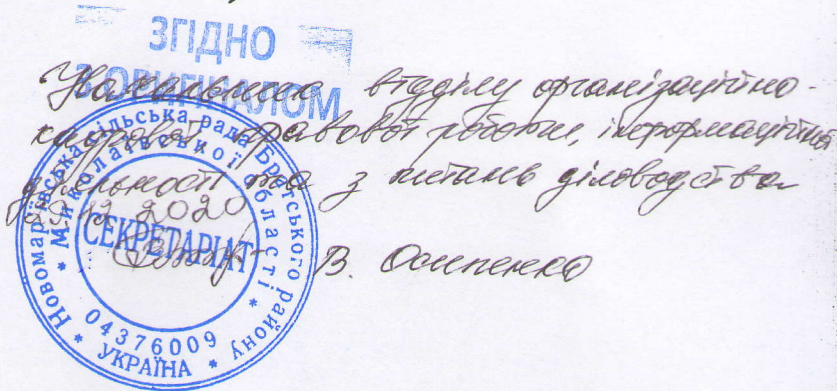 ЗГІДНО
З ОРИГІНАЛОМ
Начальник відділу організаційно-
кадрової, правової роботи, інформаційної
діяльності та з питань діловодства
29.12.2020
В. Осипенко
Новомар'ївська сільська рада Братського району
* Миколаївської області *
СЕКРЕТАРІАТ
04376009
* УКРАЇНА *